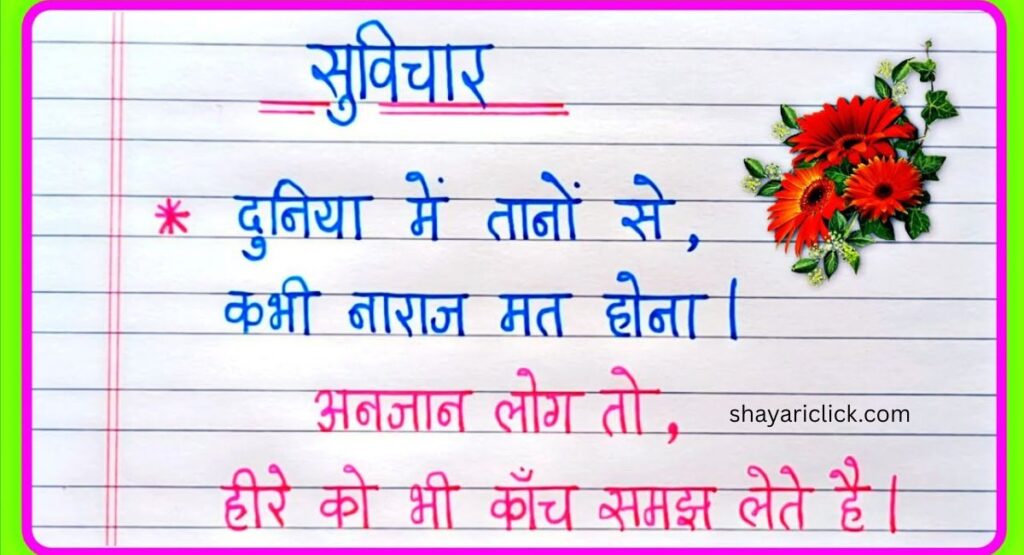 सुविचार
* दुनिया में तानों से,
कभी नाराज मत होना।
अनजान लोग तो,
shayariclick.com
हीरे को भी काँच समझ लेते है।